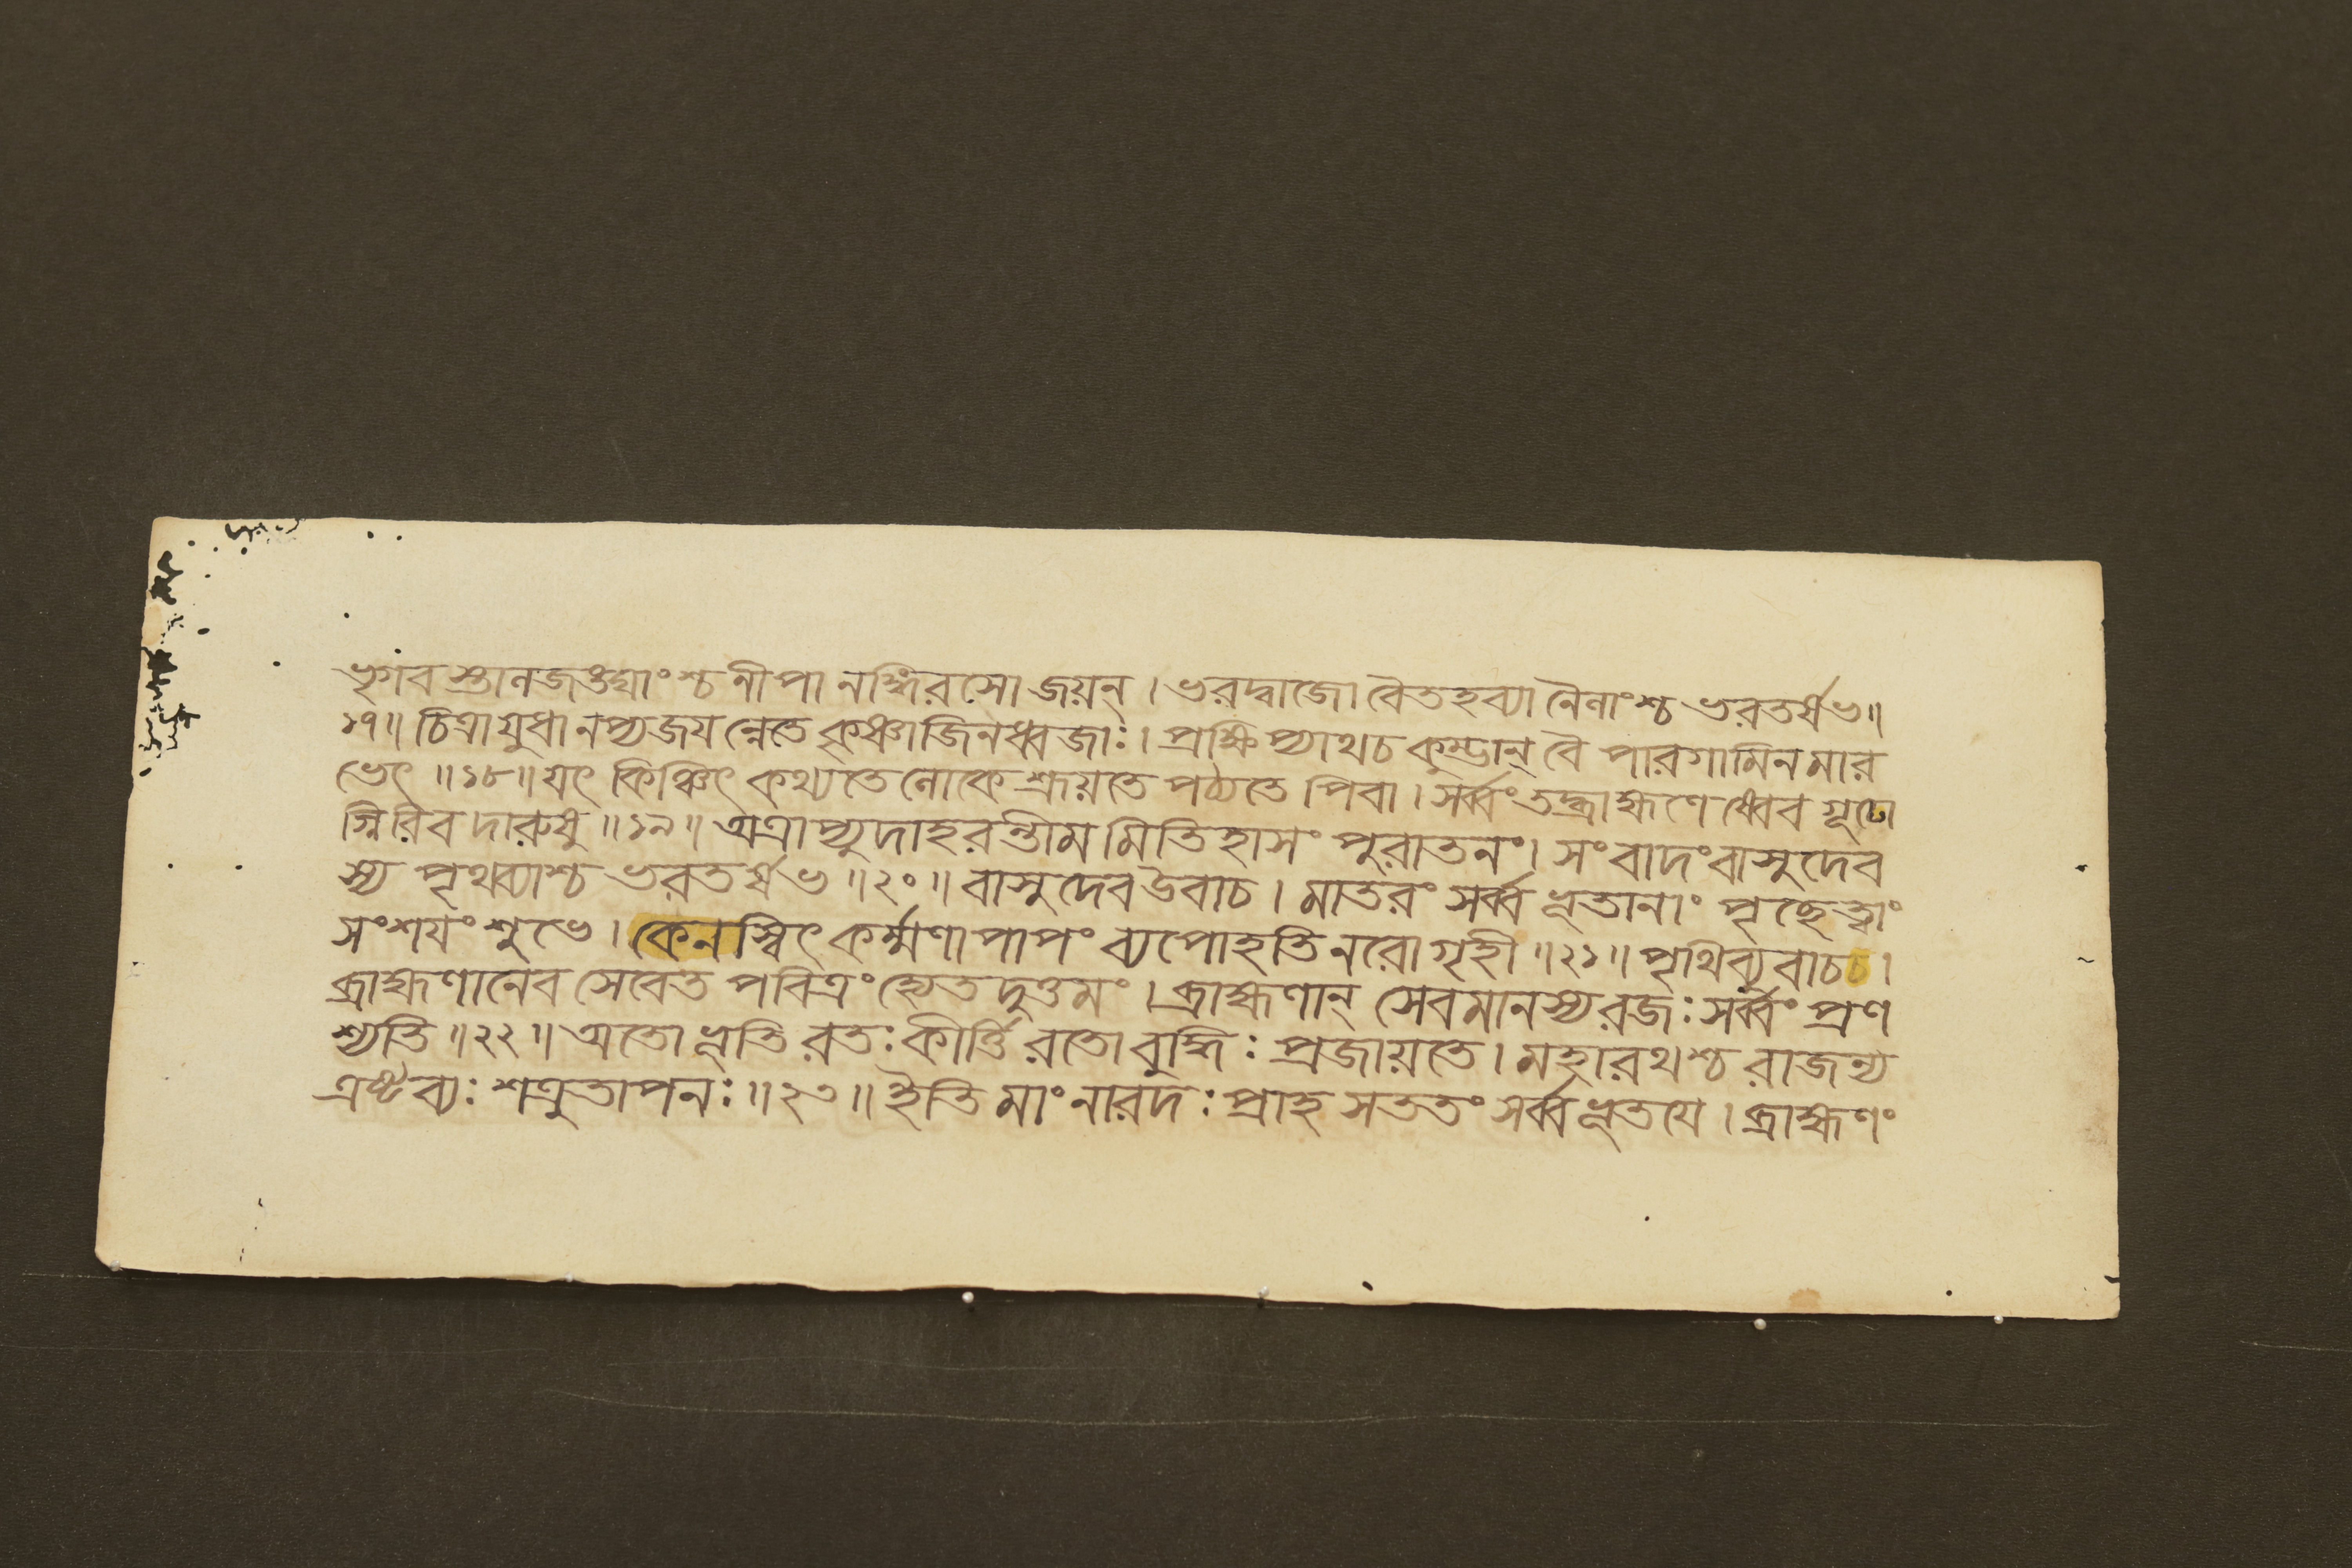 ভৃগবস্তানজঙঘাংশ্চ নীপানঙ্গিরসো জয়ন্ । ভরদ্বাজো বৈতহব্যানৈনাংশ্চ ভরতর্ষভ ॥
১৭ ॥ চিত্রায়ুধানপ্যজযন্নেতে কৃষ্ণাজিনধ্বজাঃ । প্রক্ষিপ্যাথ চ কুম্ভান্ বৈ পারগামিনমার
ভেৎ ॥ ১৮ ॥ যৎ কিঞ্চিৎ কথ্যতে লোকে শ্রূয়তে পঠ্যতে পিবা । সর্ব্বং তদ্ব্রাহ্মণেষ্বেব গূঢো
গ্নিরিব দারুষু ॥ ১৯ ॥ অত্রাপ্যুদাহরন্তীমমিতিহাসং পুরাতনং । সংবাদং বাসুদেব
স্য পৃথব্যাশ্চ ভরতর্ষভ ॥ ২০ ॥ বাসুদেব উবাচ । মাতরং সর্ব্বভূতানাং পৃচ্ছে ত্বাং
সংশযং শুভে । কেনস্বিৎ কর্ম্মণা পাপং ব্যপোহতি নরো গৃহী ॥ ২১ ॥ পৃথিব্যুবাচচ ।
ব্রাহ্মণানেব সেবেত পবিত্রং হ্যেতদুত্তমং । ব্রাহ্মণান্ সেবমানস্য রজঃ সর্ব্বং প্রণ
শ্যতি ॥ ২২ ॥ অতো ভূতিরতঃ কীর্ত্তিরতো বুদ্ধিঃ প্রজায়তে । মহারথশ্চ রাজন্য
এষ্টব্যঃ শত্রুতাপনঃ ॥ ২৩ ॥ ইতি মাং নারদঃ প্রাহ সততং সর্ব্বভূতযে । ব্রাহ্মণং